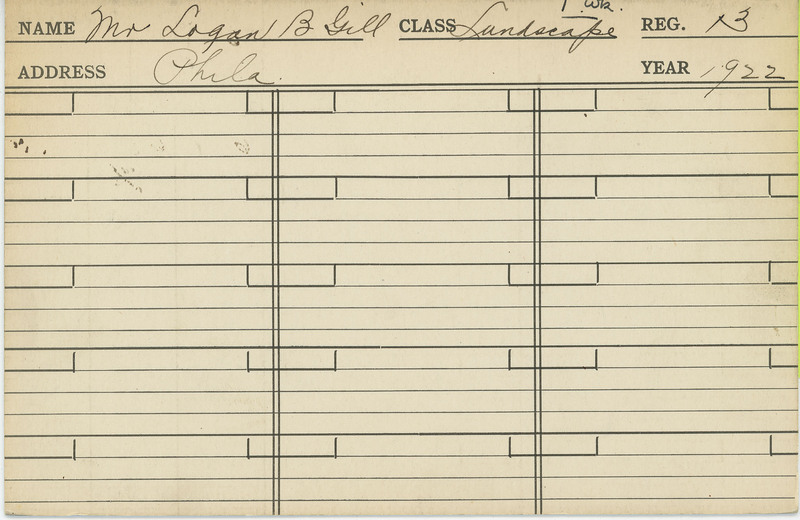 1 wk.
NAME Mr Logan B Gill CLASS Landscape REG. 13
ADDRESS Phila. YEAR 1922